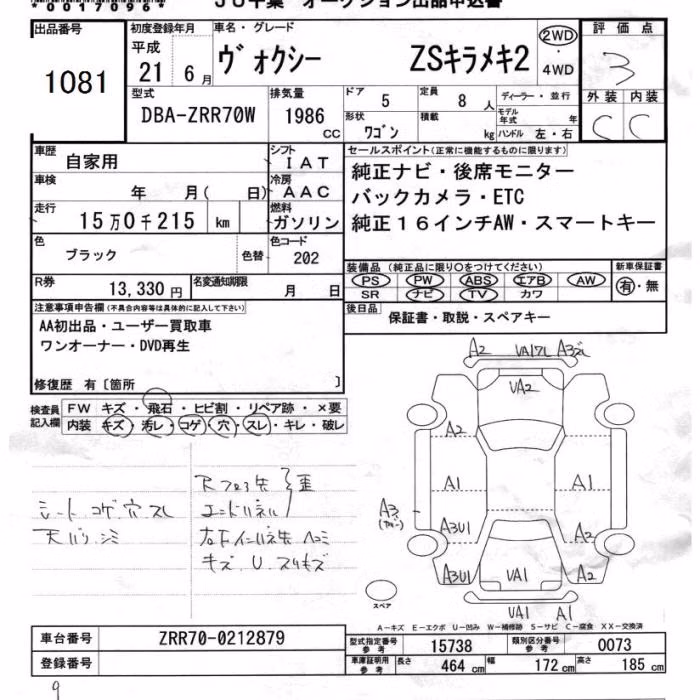 *00017096*
JU千葉 オークション出品申込書
出品番号 初度登録年月 車名・グレード 評価点
1081 平成 21 6月 ヴォクシー ZSキラメキ2 2WD・4WD 3
型式 排気量 ドア 定員 ディーラー・並行 外装 内装
DBA-ZRR70W 1986 CC 5 8人 モデル年式 年 C C
形状 積載 ワゴン kg ハンドル 左・右
車歴 自家用 シフト IAT セールスポイント(正常に機能するものに限ります)
車検 年 月( 日) 冷房 AAC 純正ナビ・後席モニター
バックカメラ・ETC
走行 15万0千215 km 燃料 ガソリン 純正16インチAW・スマートキー
色 ブラック 色替 色コード 202
装備品(純正品に限り○をつけてください) 新車保証書
PS PW ABS エアB AW 有・無
SR ナビ TV カワ
R券 13,330円 名変通知期限 月 日
後日品 保証書・取説・スペアキー
注意事項申告欄(不具合内容等は具体的に記入して下さい)
AA初出品・ユーザー買取車
ワンオーナー・DVD再生
修復歴 有〔箇所 〕
検査員記入欄 FW キズ・飛石・ヒビ割・リペア跡・×要
内装 キズ・汚レ・コゲ・穴・スレ・キレ・破レ
シート コゲ 穴 スレ
天バリ シミ
エンドパネル 歪
キズ U スリキズ
A2 VA17L
VA2
A2
A1 A1
A3
A3U1 A2
A3U1 VA1 A2
VA1 A1
スペア
A-キズ E-エクボ U-凹み W-補修跡 S-サビ C-腐食 XX-交換済
車台番号 ZRR70-0212879 型式指定番号 参考 15738 類別区分番号 参考 0073
登録番号 車庫証明用 参考 長さ 464 cm 幅 172 cm 高さ 185 cm
9